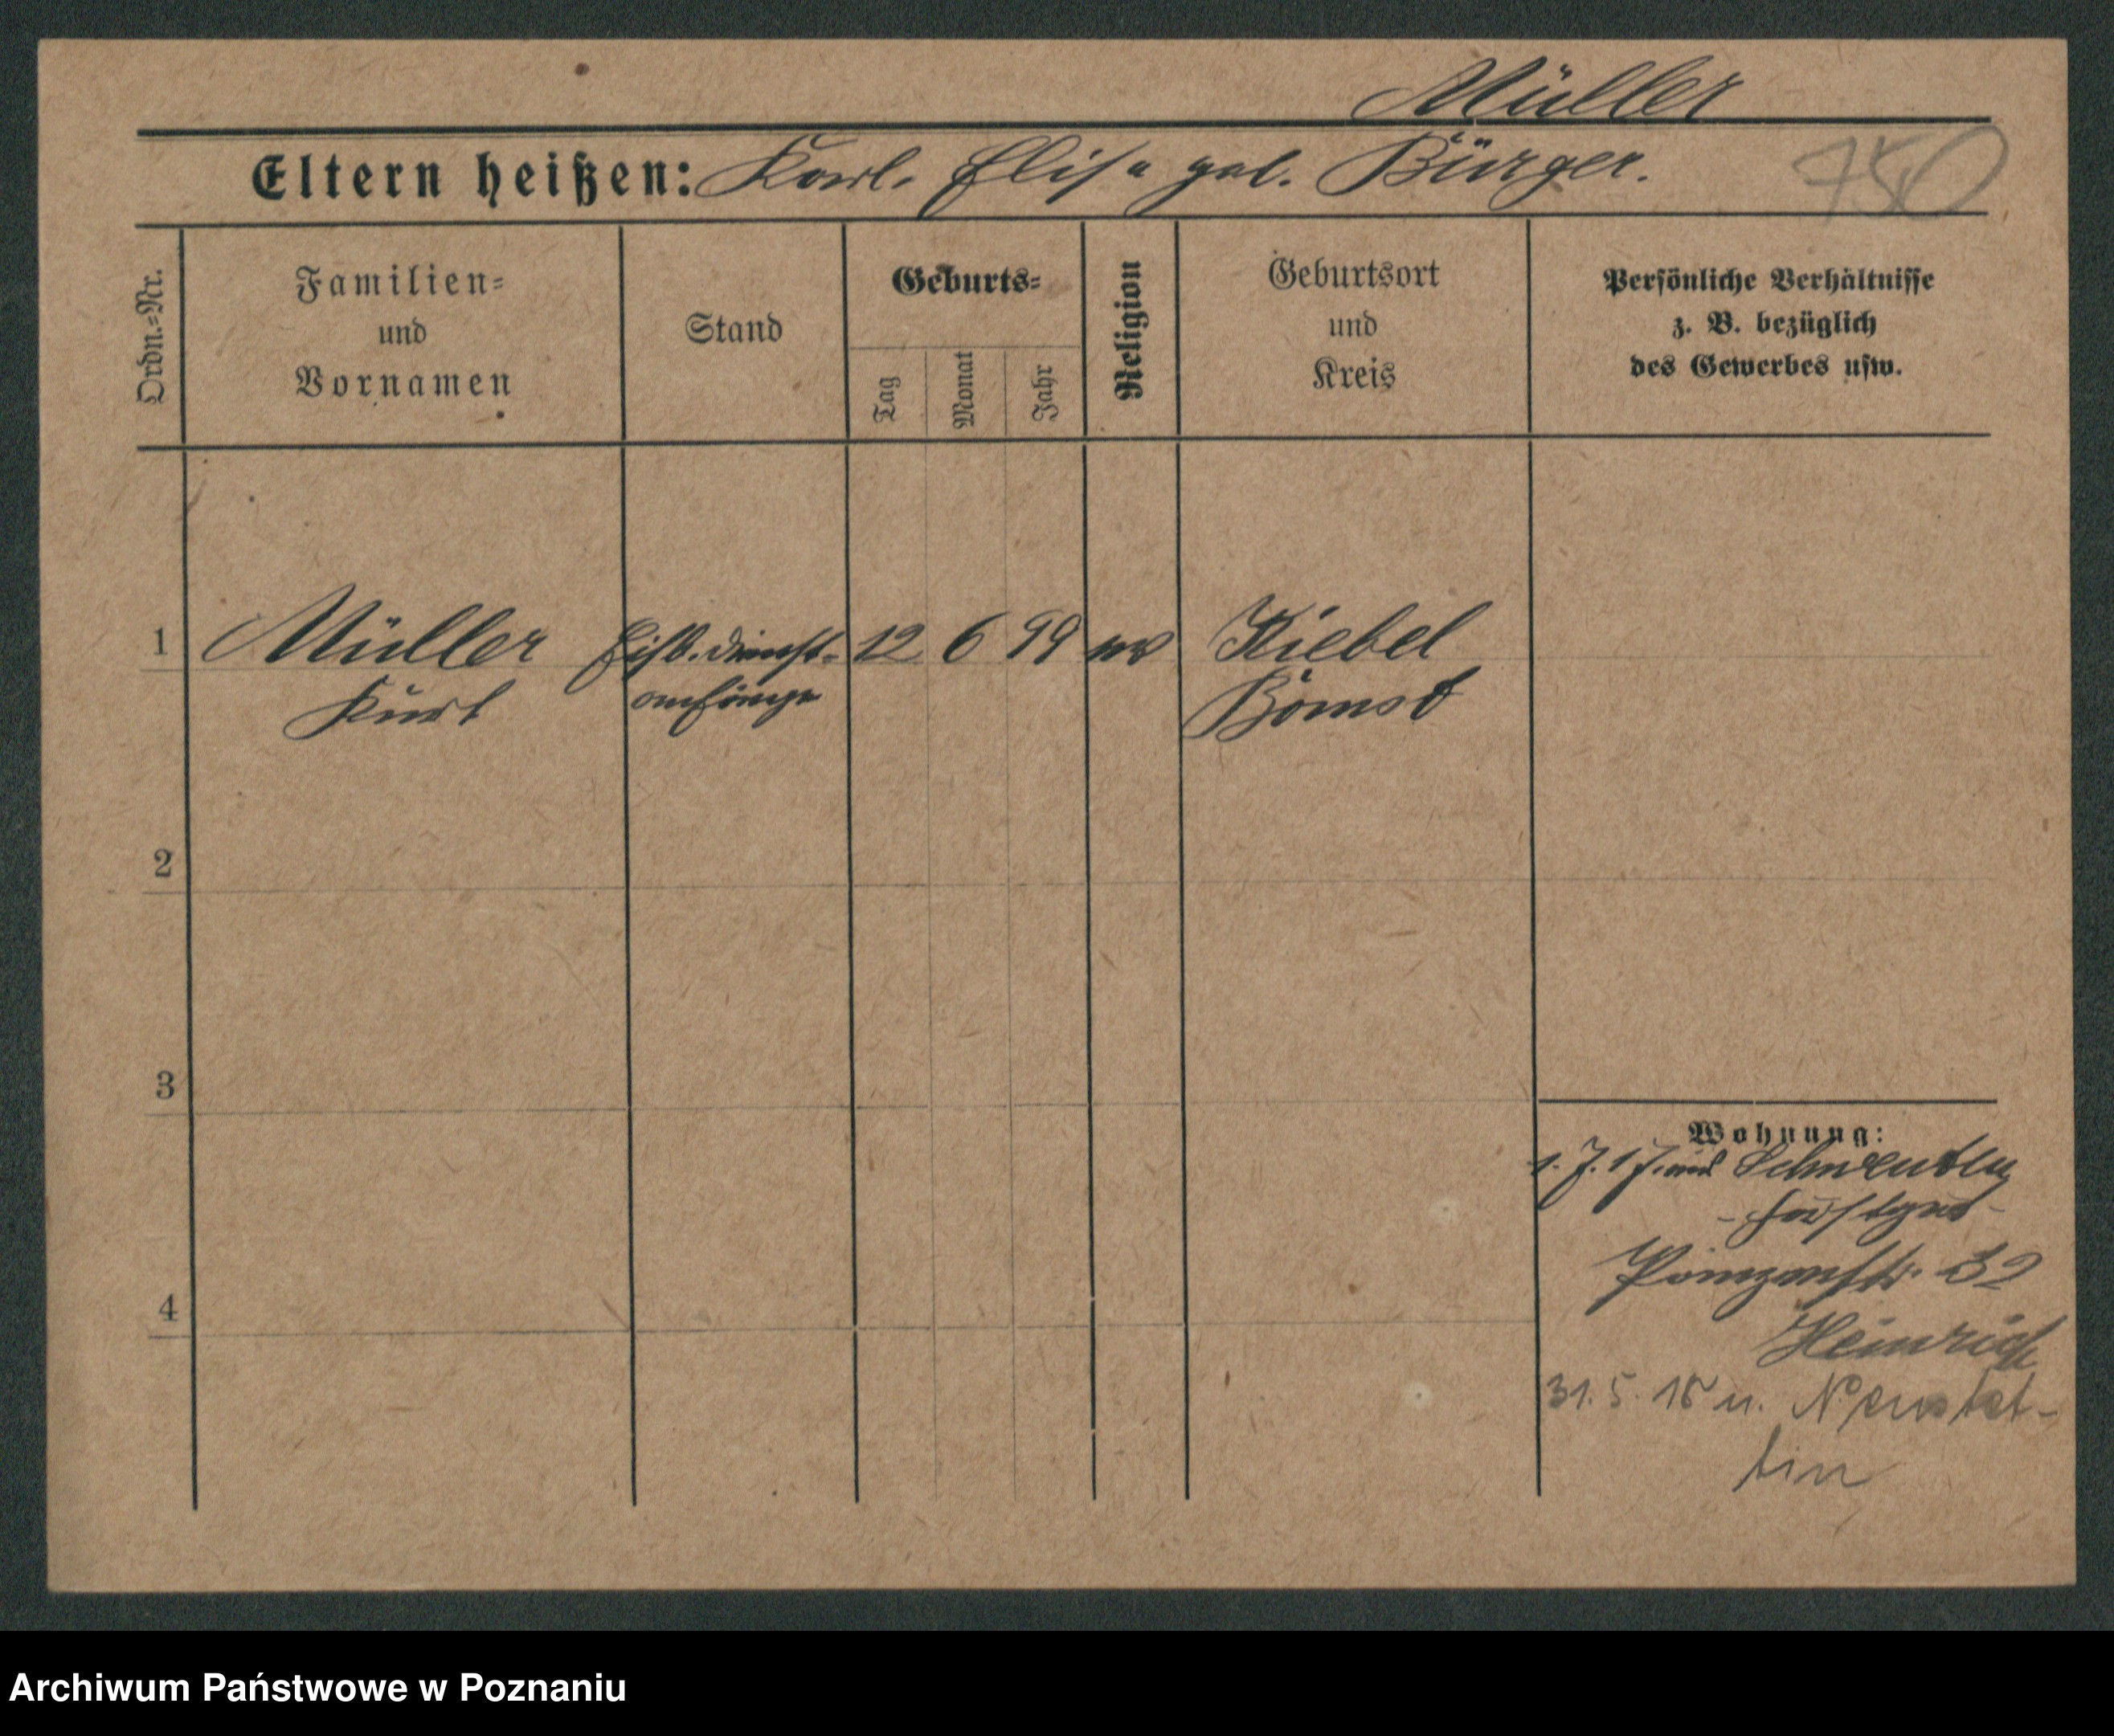 Müller
Eltern heißen: Karl. Elise geb. Bürger. 750
Ordn.=Nr.
Familien=
und
Vornamen
Stand
Geburts=
Tag
Monat
Jahr
Religion
Geburtsort
und
Kreis
Persönliche Verhältnisse
z. B. bezüglich
des Gewerbes usw.
1 Müller 12 6 99 Kiebel
Kurt Bomst
2
3
4
Wohnung:
1.7.17. aus
Prinzenstr. 32
Heinrich
31.5.18 n. Neustet-
tin
Archiwum Państwowe w Poznaniu